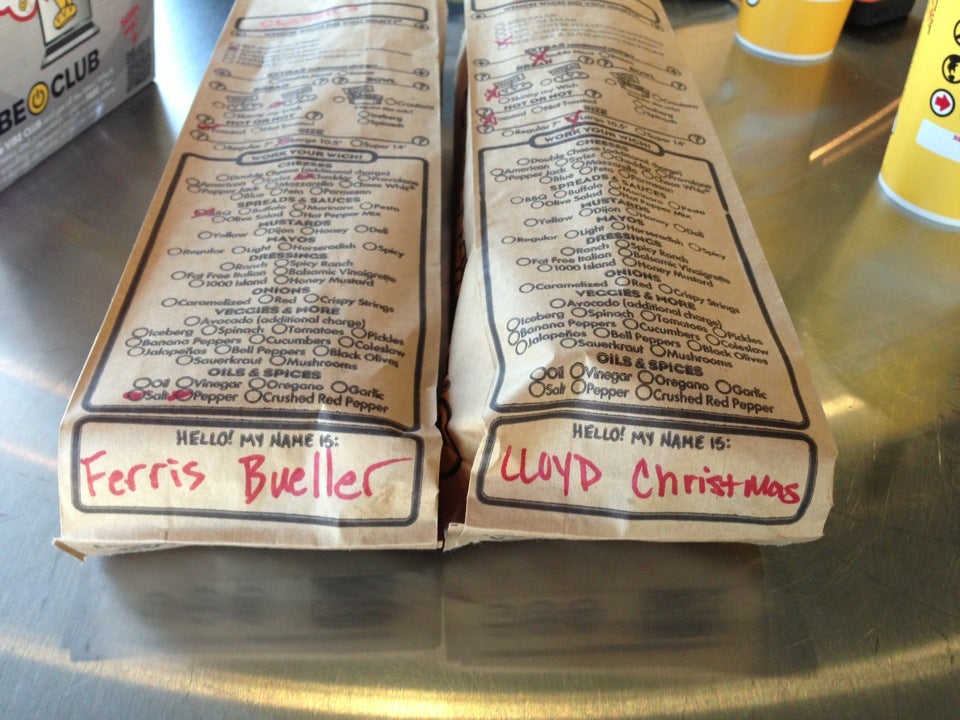 BE CLUB
CLASSICS
EXTRAS
BOWL
Skinny my Wich
Croutons
Iceberg
Spinach
HOT OR NOT
Toasted Not Toasted
SIZE
Regular 7" Large 10.5" Super 14"
WORK YOUR WICH!
CHEESES
Double Cheese (additional charge)
American Swiss Cheddar Provolone
Pepper Jack Mozzarella Cheez Whiz
Blue Feta Parmesan
SPREADS & SAUCES
BBQ Buffalo Marinara Pesto
Olive Salad Hot Pepper Mix
MUSTARDS
Yellow Dijon Honey Deli
MAYOS
Regular Light Horseradish Spicy
DRESSINGS
Ranch Spicy Ranch
Fat Free Italian Balsamic Vinaigrette
1000 Island Honey Mustard
ONIONS
Caramelized Red Crispy Strings
VEGGIES & MORE
Avocado (additional charge)
Iceberg Spinach Tomatoes Pickles
Banana Peppers Cucumbers Coleslaw
Jalapeños Bell Peppers Black Olives
Sauerkraut Mushrooms
OILS & SPICES
Oil Vinegar Oregano Garlic
Salt Pepper Crushed Red Pepper
HELLO! MY NAME IS:
Ferris Bueller
Skinny my Wich
Croutons
Iceberg
Spinach
HOT OR NOT
Toasted Not Toasted
SIZE
Regular 7" Large 10.5" Super 14"
WORK YOUR WICH!
CHEESES
Double Cheese (additional charge)
American Swiss Cheddar Provolone
Pepper Jack Mozzarella Cheez Whiz
Blue Feta Parmesan
SPREADS & SAUCES
BBQ Buffalo Marinara Pesto
Olive Salad Hot Pepper Mix
MUSTARDS
Yellow Dijon Honey Deli
MAYOS
Regular Light Horseradish Spicy
DRESSINGS
Ranch Spicy Ranch
Fat Free Italian Balsamic Vinaigrette
1000 Island Honey Mustard
ONIONS
Caramelized Red Crispy Strings
VEGGIES & MORE
Avocado (additional charge)
Iceberg Spinach Tomatoes Pickles
Banana Peppers Cucumbers Coleslaw
Jalapeños Bell Peppers Black Olives
Sauerkraut Mushrooms
OILS & SPICES
Oil Vinegar Oregano Garlic
Salt Pepper Crushed Red Pepper
HELLO! MY NAME IS:
LLOYD Christmas